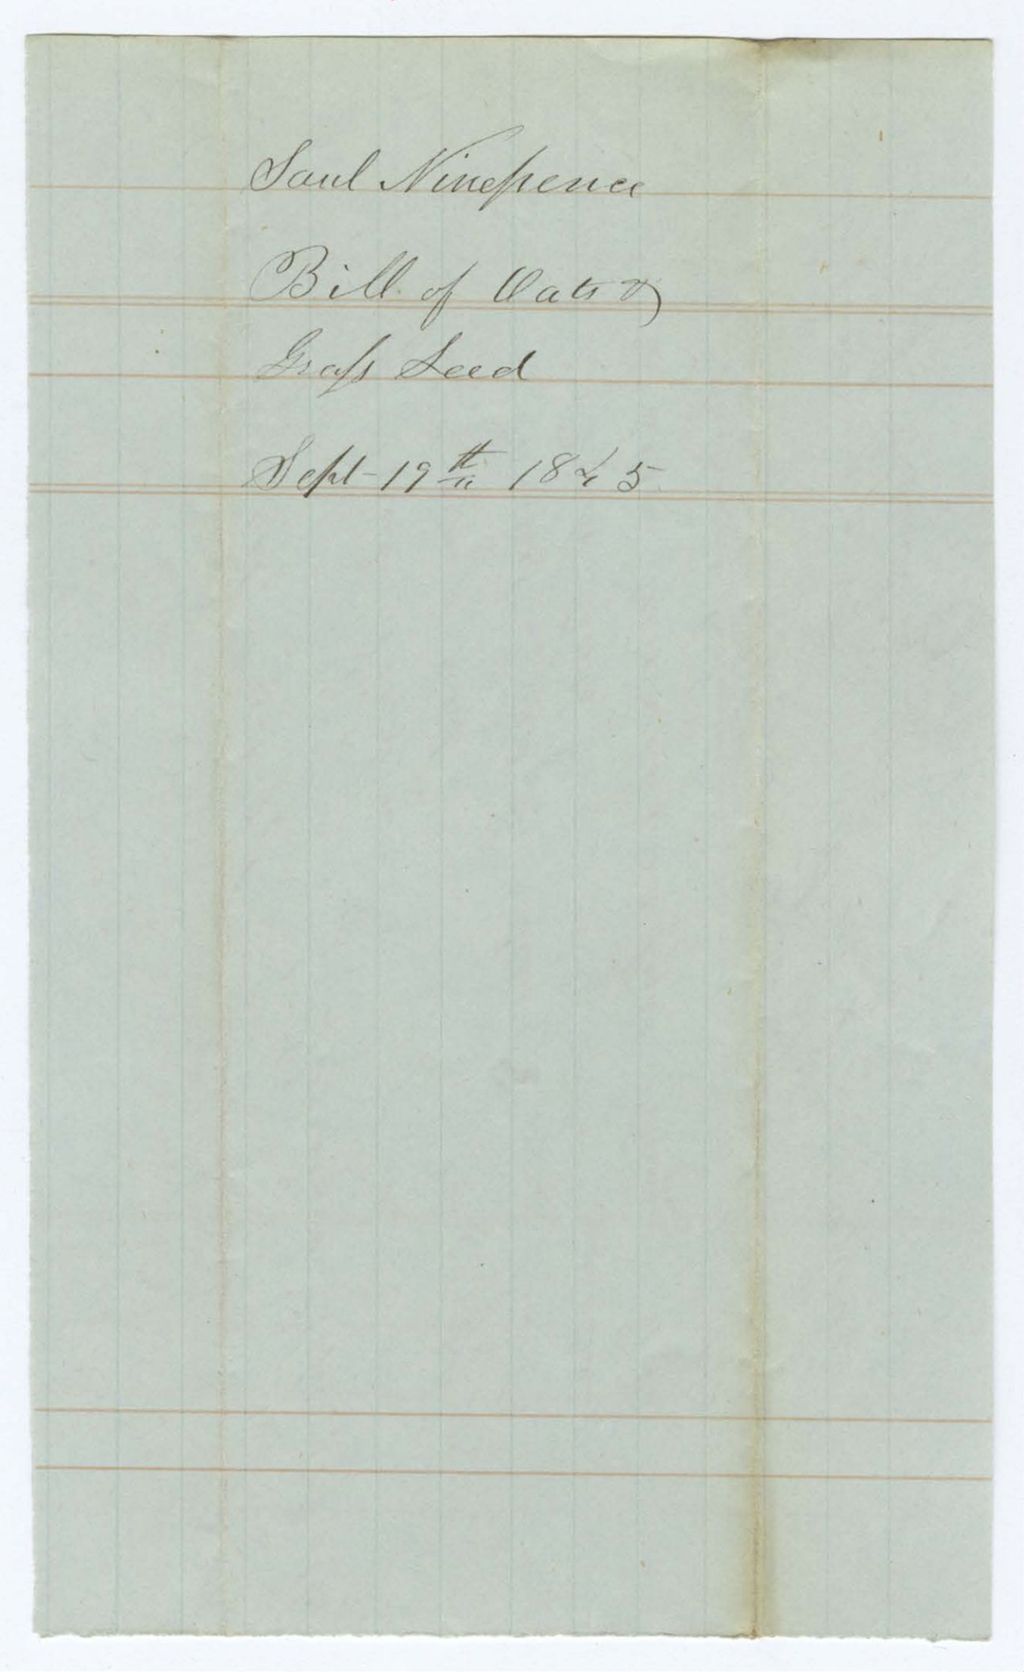 Saul Ninepence
Bill of Oats &
Grass Seed
Sept 19th 1845